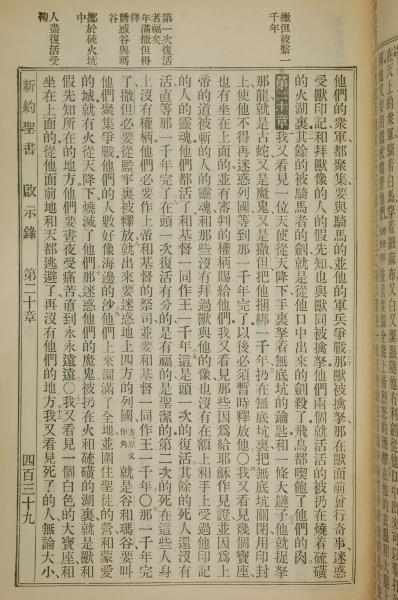 撒但被繫一
千年
第一次復活
者福矣
年滿撒但得
釋
誘惑谷與瑪
谷
擲於硫火坑
中
人盡復活受
鞫
他們的衆軍都聚集要與騎馬的並他的軍兵爭戰那獸被擒拏那在獸面前曾行奇事迷惑
受獸印記和拜獸像的人的假先知也與獸同被擒拏他們兩個就活活的被扔在燒着硫磺
的火湖裏其餘的被騎馬者的劍就是從他口中出來的劍殺了飛鳥都喫飽了他們的肉
第二十章我又看見一位天使從天降下手裏拏着無底坑的鑰匙和一條大鏈子他就捉拏
那龍就是古蛇又是魔鬼又是撒但把他捆綁一千年扔在無底坑裏把無底坑關閉用印封
上使他不得再迷惑列國等到那一千年完了以後必須暫時釋放他〇我又看見幾個寶座
也有坐在上面的並有審判的權柄賜給他們我又看見那些因爲給耶穌作見證並因爲上
帝的道被斬的人的靈魂和那些沒有拜過獸與他的像也沒有在額上和手上受過他印記
的人的靈魂他們都活了和基督一同作王一千年這是頭一次的復活其餘的死人還沒有
活直等那一千年完了在頭一次復活有分的是有福的是聖潔的第二次的死在這些人身
上沒有權柄他們必要作上帝和基督的祭司並要和基督一同作王一千年〇那一千年完
了撒但必要從監牢裏被釋放就出來要迷惑地上四方的列國方原文作角就是谷和瑪谷要叫
他們聚集爭戰他們的人數好像海邊的沙他們上來徧滿了全地並圍住聖徒的營和蒙愛
的城就有火從天降下燒滅了他們那迷惑他們的魔鬼被扔在火和硫磺的湖裏就是獸和
假先知所在的地方他們要晝夜受痛苦直到永永遠遠〇我又看見一個白色的大寶座和
坐在上面的從他面前地和天都逃避了再沒有他們的地方我又看見死了的人無論大小
新約聖書 啟示錄 第二十章 四百三十九